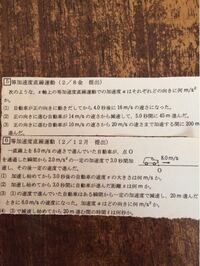 5 等加速度直線運動（2／8金 提出）
次のような、x軸上の等加速度直線運動での加速度aはそれぞれどの向きに何m/s²
か。
(1) 自動車が正の向きに動きだしてから4.0秒後に16m/sの速さになった。
(2) 正の向きに進む自動車が14m/sの速さから減速して、5.0秒間に45m進んだ。
(3) 正の向きに進む自動車が10m/sの速さから20m/sの速さまで加速する間に200m
進んだ。
6 等加速度直線運動（2／12月 提出）
一直線上を8.0m/sの速さで進んでいた自動車が、点O
を通過した瞬間から2.0m/s²の一定の加速度で3.0秒間加
速し、その後一定の速度で進んだ。
8.0m/s
O
(1) 加速し始めてから3.0秒後の自動車の速度の大きさは何m/sか。
(2) 加速し始めてから3.0秒後の自動車の進んだ距離xは何mか。
(3) (1)の一定の速度で進んでいた自動車はある瞬間から一定の加速度で減速し、20m進んだ
ときに6.0m/sの速度になった。加速度の向きと大きさは何m/s²か。
(4) (3)で減速し始めてから20m進む間の時間tは何秒か。